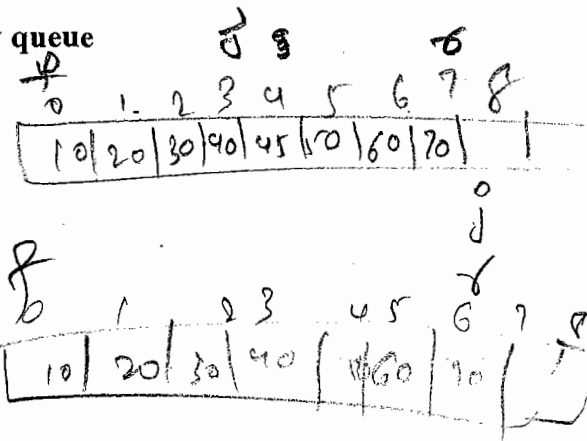 queue
j r
0 1 2 3 4 5 6 7 8
10 20 30 40 45 50 60 70
j
r
f
0 1 2 3 4 5 6 7 8
10 20 30 40 60 70